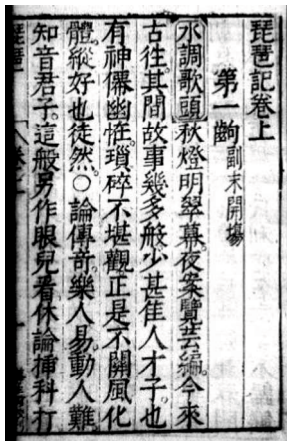 琵琶記卷上
第一齣 副末開場
水調歌頭 秋燈明翠幕。夜案覽芸編。今來
古往。其間故事幾多般。少甚佳人才子。也
有神僊幽恠。瑣碎不堪觀。正是不關風化
體。縱好也徒然。〇論傳奇。樂人易。動人難。
知音君子。這般另作眼兒看。休論插科打